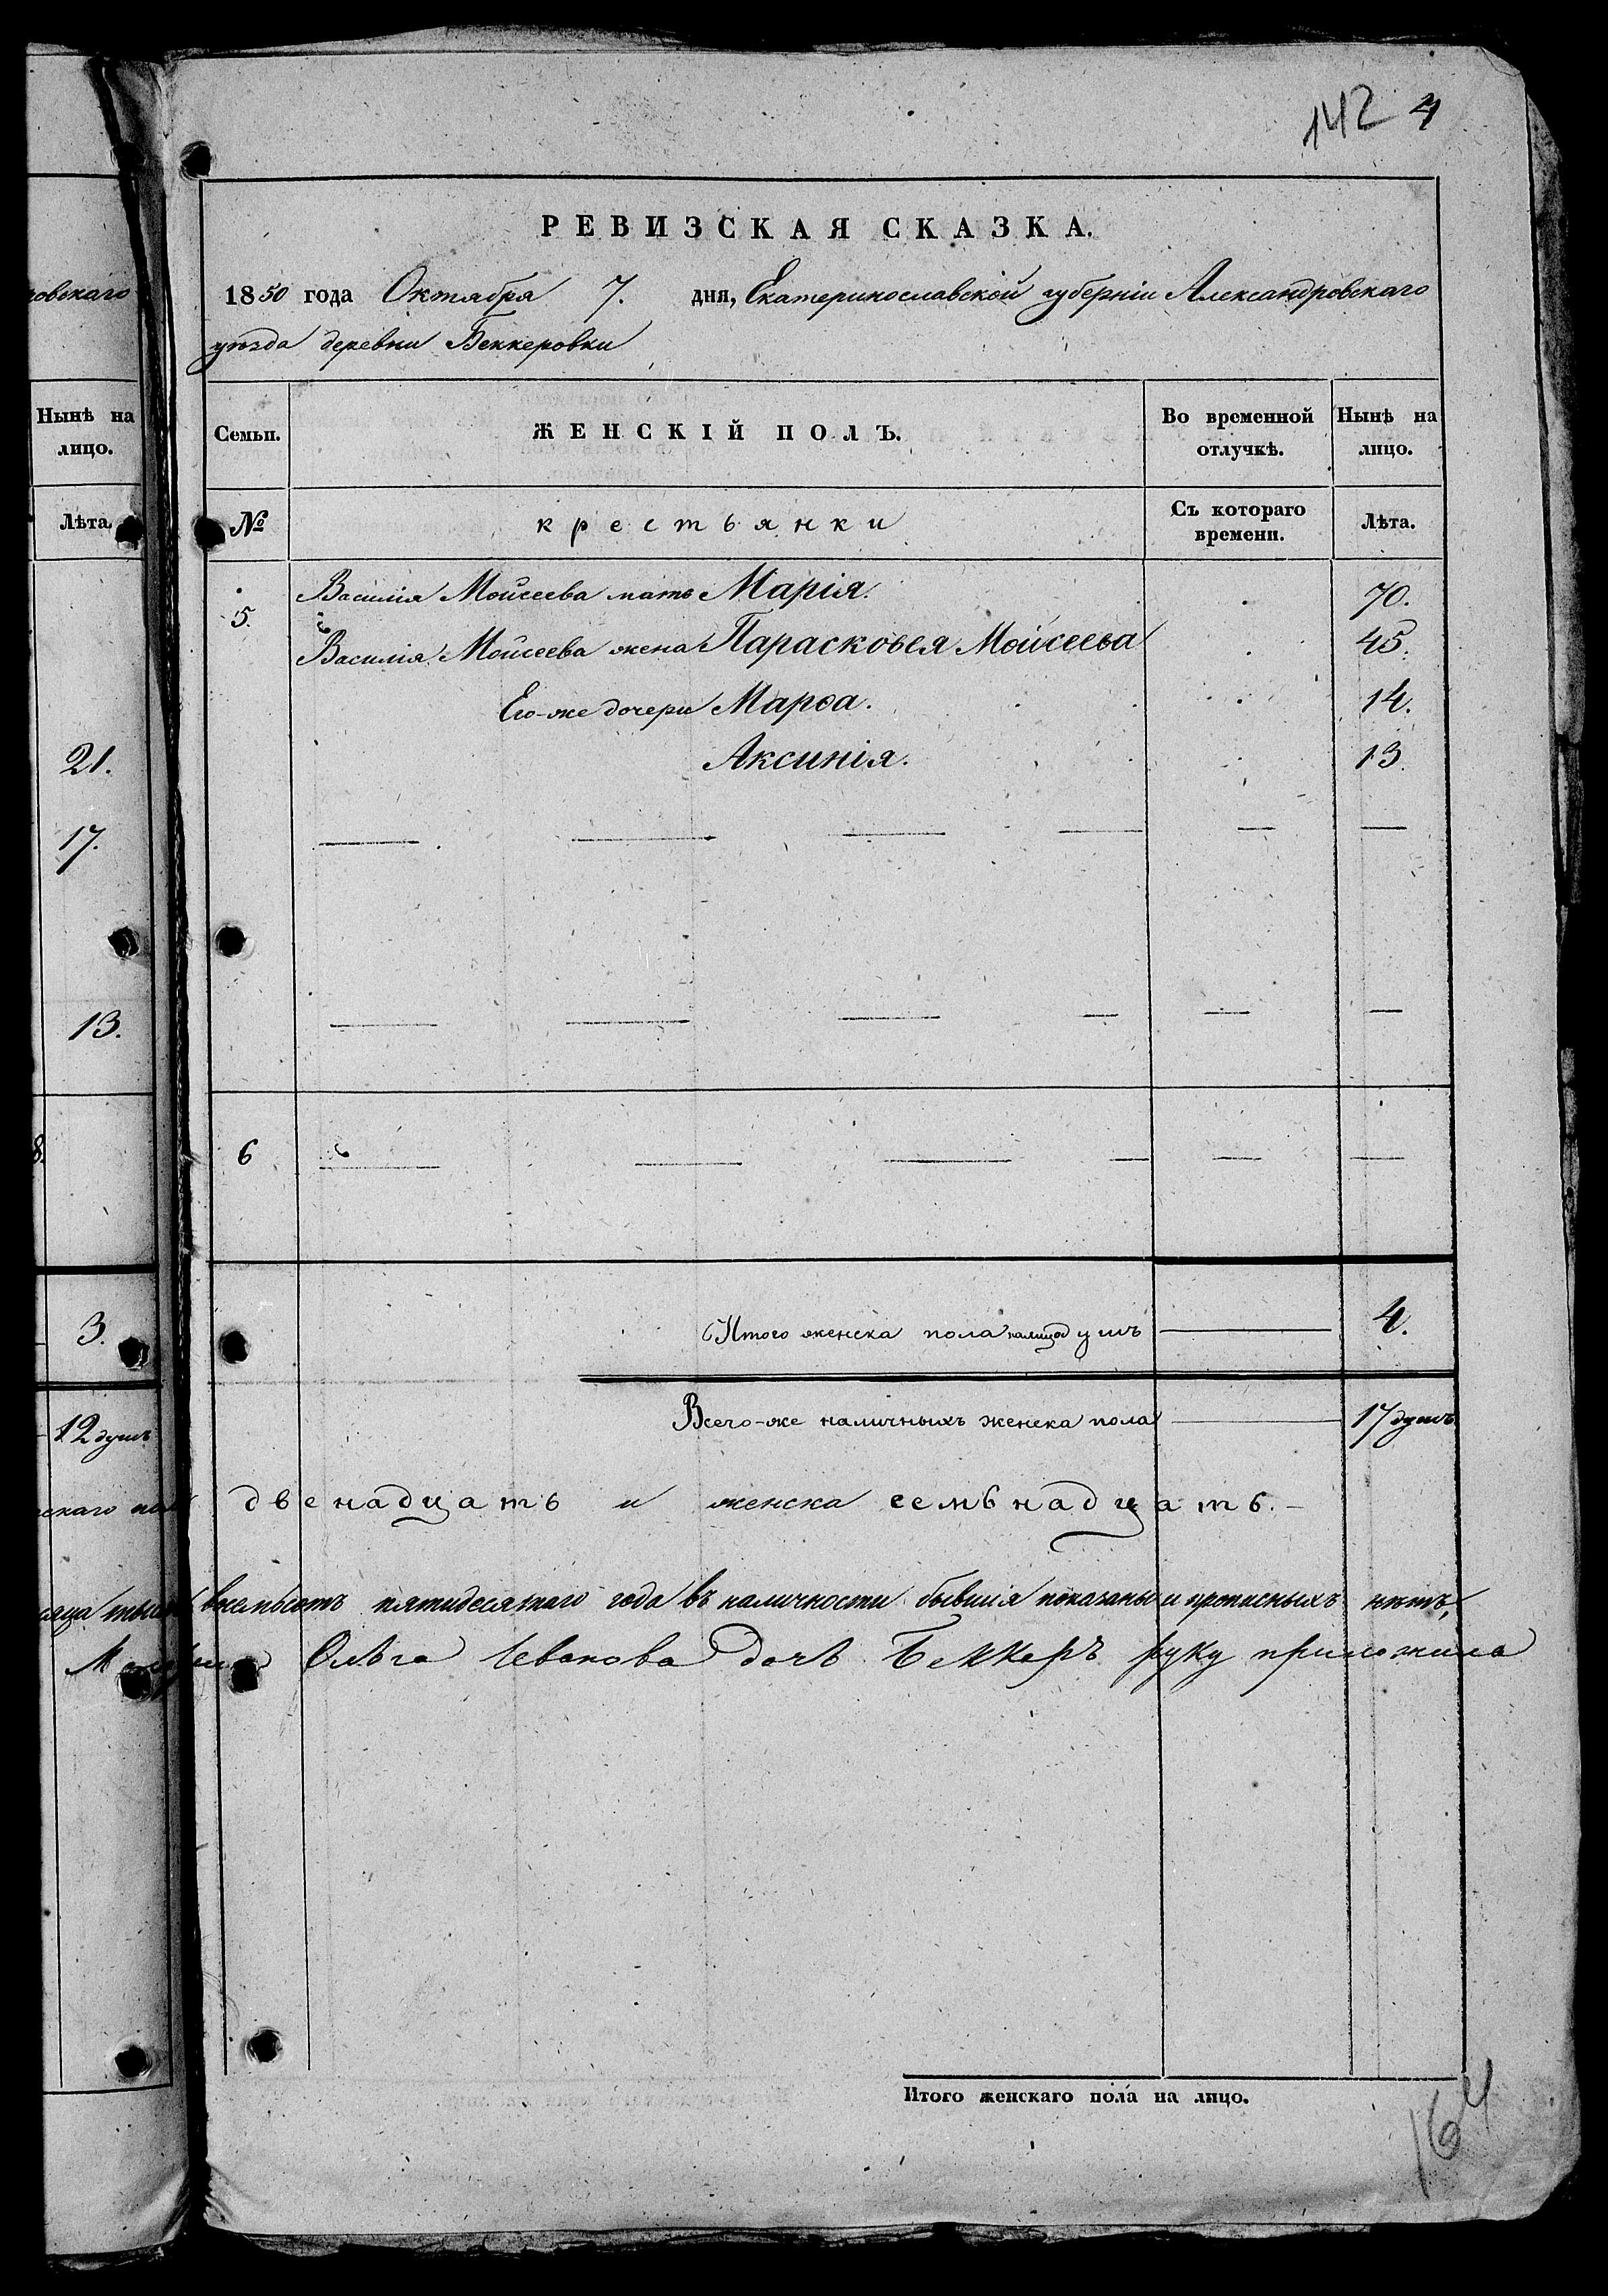 142 4
РЕВИЗСКАЯ СКАЗКА.
1850 года Октября 7. дня, Екатеринославской губерніи Александровскаго
уѣзда деревни Беккеровки
Семьи.
ЖЕНСКІЙ ПОЛЪ.
Во временной отлучкѣ.
Нынѣ на лицо.
№
крестьянки
Съ котораго времени.
Лѣта.
5. Василія Моисеева мать Марія. 70.
Василія Моисеева жена Парасковья Моисеева 45.
Его-же дочери Марѳа. 14.
Аксинія. 13.
6
Итого женска пола налицо душъ 4.
Всего-же наличныхъ женска пола 17 душъ
двенадцать и женска семьнадцать.
восемьсотъ пятидесятаго года въ наличности бывшія показаны и прописныхъ нѣтъ,
Ольга Иванова дочь Беккеръ руку приложила
Итого женскаго пола на лицо.
164
ровскаго
Нынѣ на
лицо.
Лѣта.
21.
17.
13.
8.
3.
12 душъ